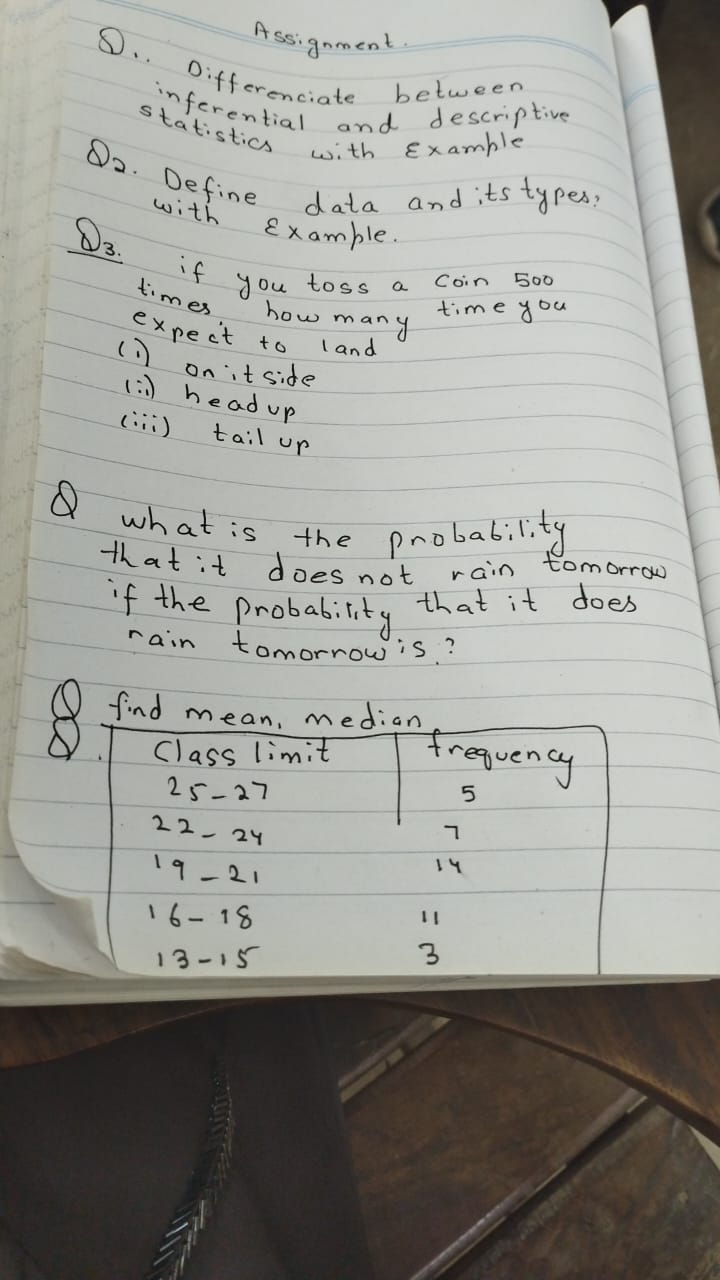 Assignment.
Q1. Differenciate between
inferential and descriptive
statistics with Example
Q2. Define data and its types,
with Example.
Q3. if you toss a Coin 500
times, how many time you
expect to land
(i) on it side
(ii) head up
(iii) tail up
Q what is the probability
that it does not rain tomorrow
if the probability that it does
rain tomorrow is ?
Q find mean, median
Q. Class limit frequency
25-27 5
22-24 7
19-21 14
16-18 11
13-15 3